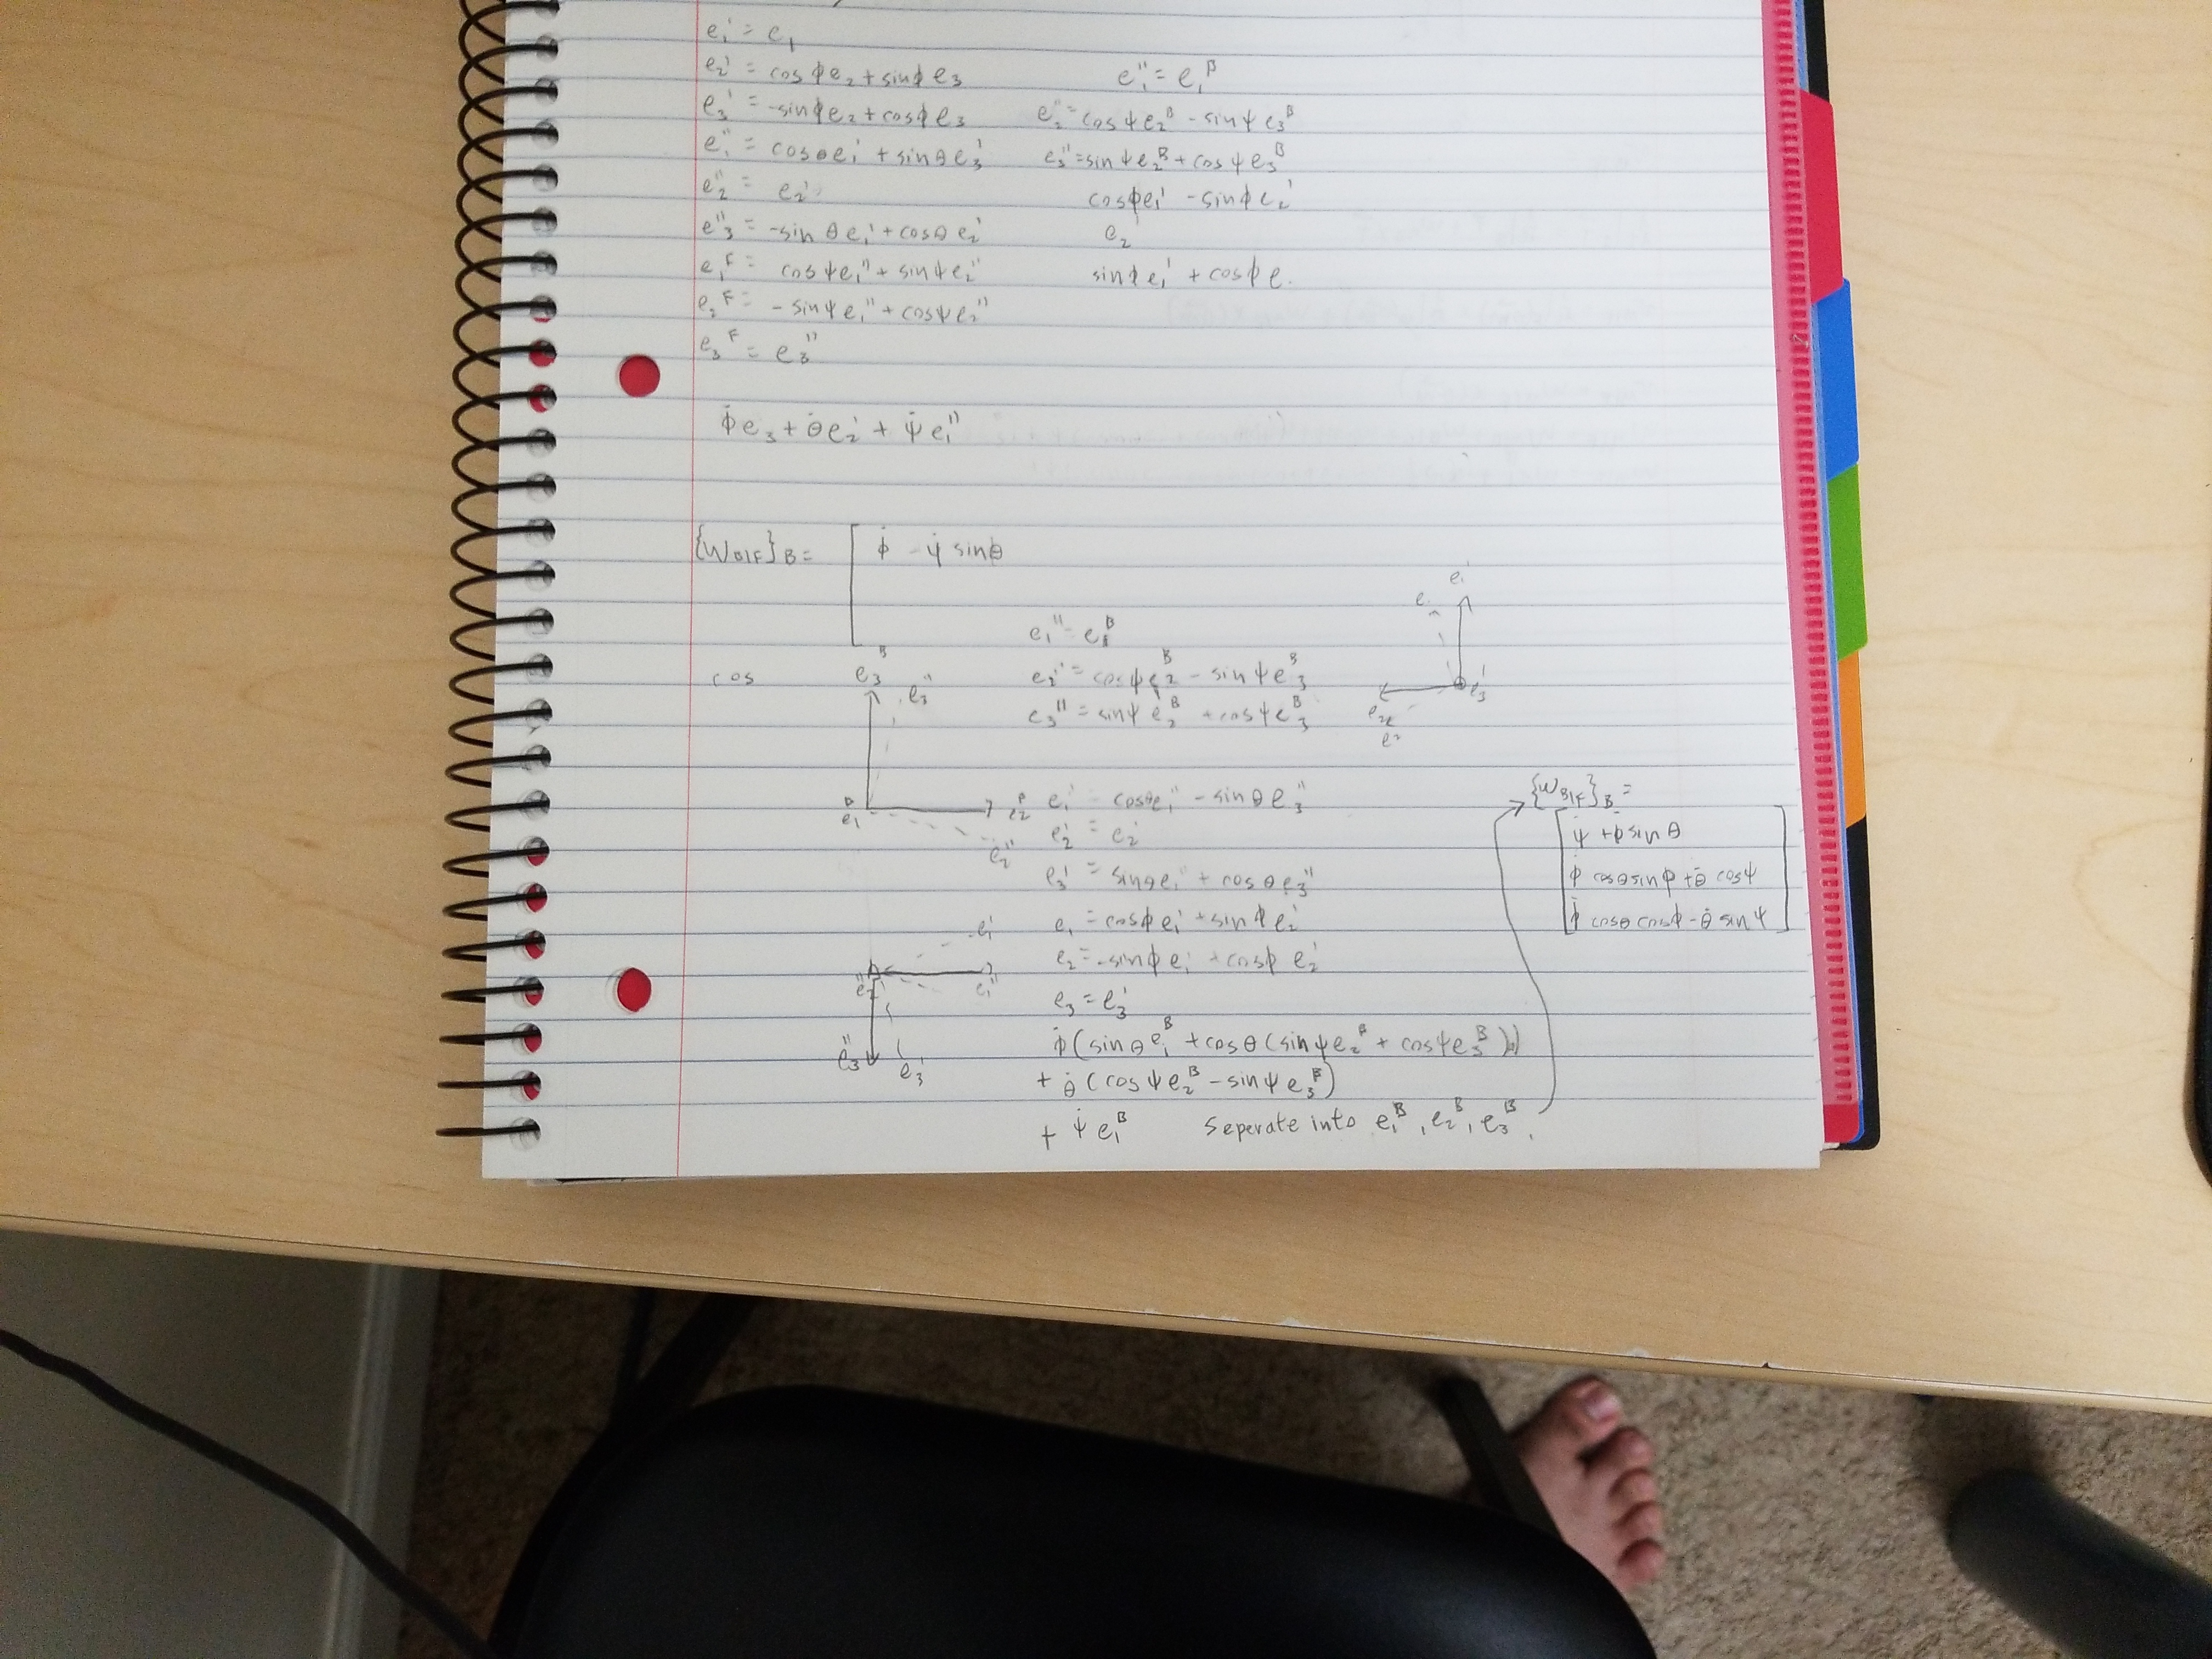 e₁' = e₁
e₂' = cosϕe₂+sinϕe₃
e₃' = -sinϕe₂+cosϕe₃
e₁'' = cosθe₁' + sinθe₃'
e₂'' = e₂'
e₃'' = -sinθe₁'+cosθe₂'
e₁ᶠ = cosψe₁''+ sinψe₂''
e₂ᶠ = -sinψe₁''+cosψe₂''
e₃ᶠ = e₃''
e₁'' = e₁ᴮ
e₂'' = cosψe₂ᴮ - sinψe₃ᴮ
e₃'' = sinψe₂ᴮ + cosψe₃ᴮ
cosϕe₁' - sinϕe₂'
e₂'
sinϕe₁' + cosϕe.
ϕ̇e₃+θ̇e₂'+ψ̇e₁''
{ω_B|F}_B = [ϕ̇ - ψ̇ sinθ
cos
e₃ᴮ
e₃''
e₁ᴮ
e₂ᴮ
e₂''
e₁'' = e₁ᴮ
e₂'' = cosψe₂ᴮ - sinψe₃ᴮ
e₃'' = sinψe₂ᴮ + cosψe₃ᴮ
e₁'
e₃'
e₁' = cosθe₁'' - sinθe₃''
e₂' = e₂'
e₃' = sinθe₁'' + cosθe₃''
e₁ = cosϕe₁' + sinϕe₂'
e₂ = -sinϕe₁' + cosϕe₂'
e₃ = e₃'
e₁'
e₂''
e₁''
e₃''
e₃'
ϕ̇(sinθe₁ᴮ + cosθ(sinψe₂ᴮ + cosψe₃ᴮ))
+ θ̇(cosψe₂ᴮ - sinψe₃ᴮ)
+ ψ̇e₁ᴮ Seperate into e₁ᴮ, e₂ᴮ, e₃ᴮ.
{ω_B|F}_B =
ψ̇ + ϕ̇sinθ
ϕ̇ cosθsinϕ + θ̇ cosψ
ϕ̇ cosθcosϕ - θ̇ sinψ